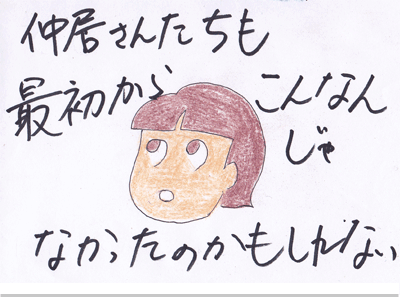 仲居さんたちも
最初から こんなん
じゃ
なかったのかもしれない